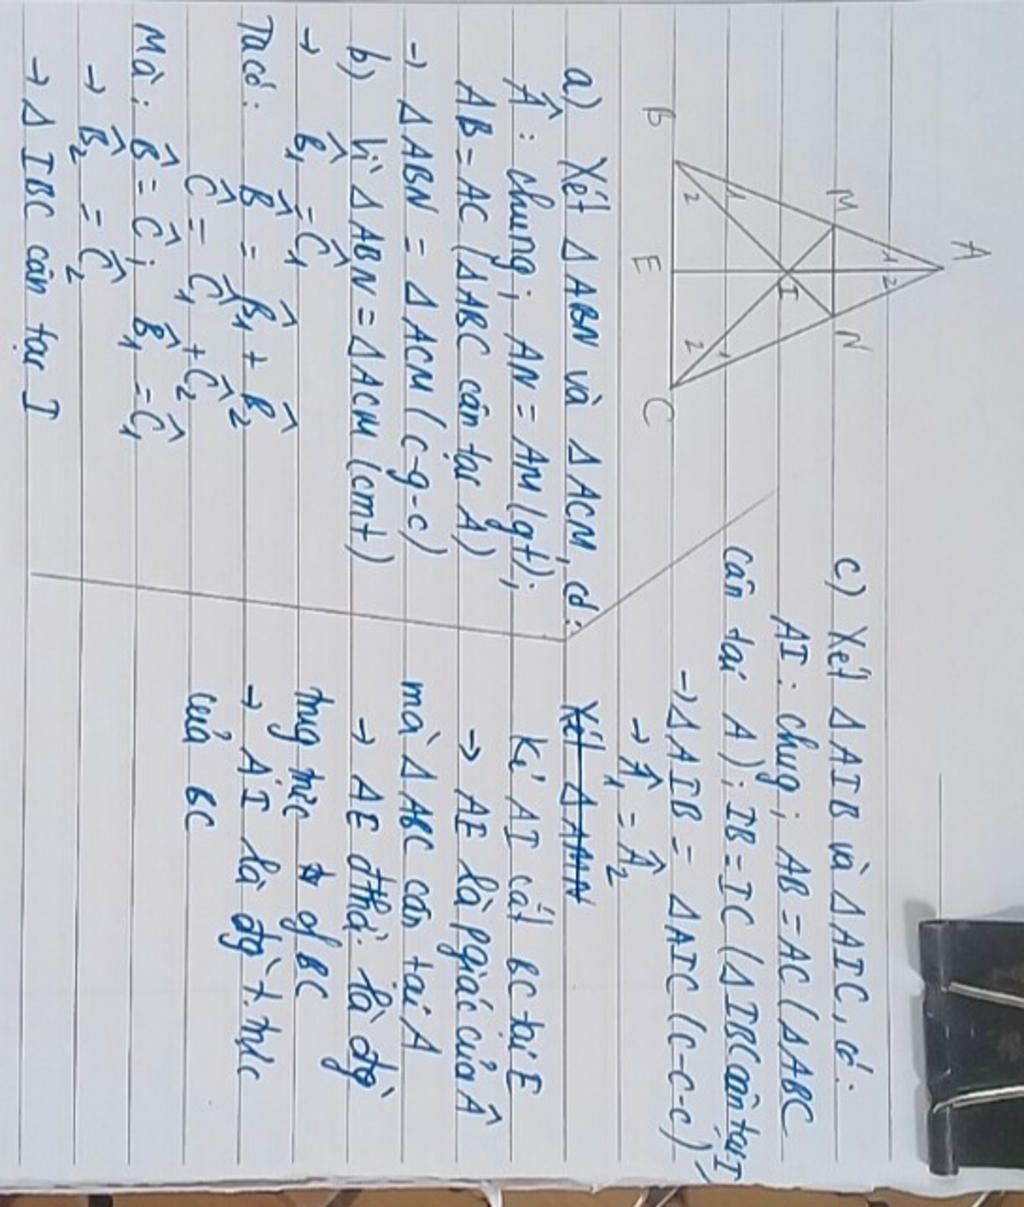 A
M
N
1
2
1
1
I
2
2
B
E
C
a) Xét Δ ABN và Δ ACM, có:
Â : chung ; AN = AM (gt) ;
AB = AC (Δ ABC cân tại A)
→ Δ ABN = Δ ACM (c-g-c)
b) Vì Δ ABN = Δ ACM (cmt)
→ B̂₁ = Ĉ₁
Ta có : B̂ = B̂₁ + B̂₂
Ĉ = Ĉ₁ + Ĉ₂
Mà : B̂ = Ĉ ; B̂₁ = Ĉ₁
→ B̂₂ = Ĉ₂
→ Δ IBC cân tại I
c) Xét Δ AIB và Δ AIC, có :
AI : chug ; AB = AC (Δ ABC
cân tại A) ; IB = IC (Δ IBC cân tại I)
→ Δ AIB = Δ AIC (c-c-c)
→ Â₁ = Â₂
Xét Δ AMN
Kẻ AI cắt BC tại E
→ AE là pgiác của Â
mà Δ ABC cân tại A
→ AE đthời là đg`
trug trực of BC
→ AI là đg` t. trực
của BC